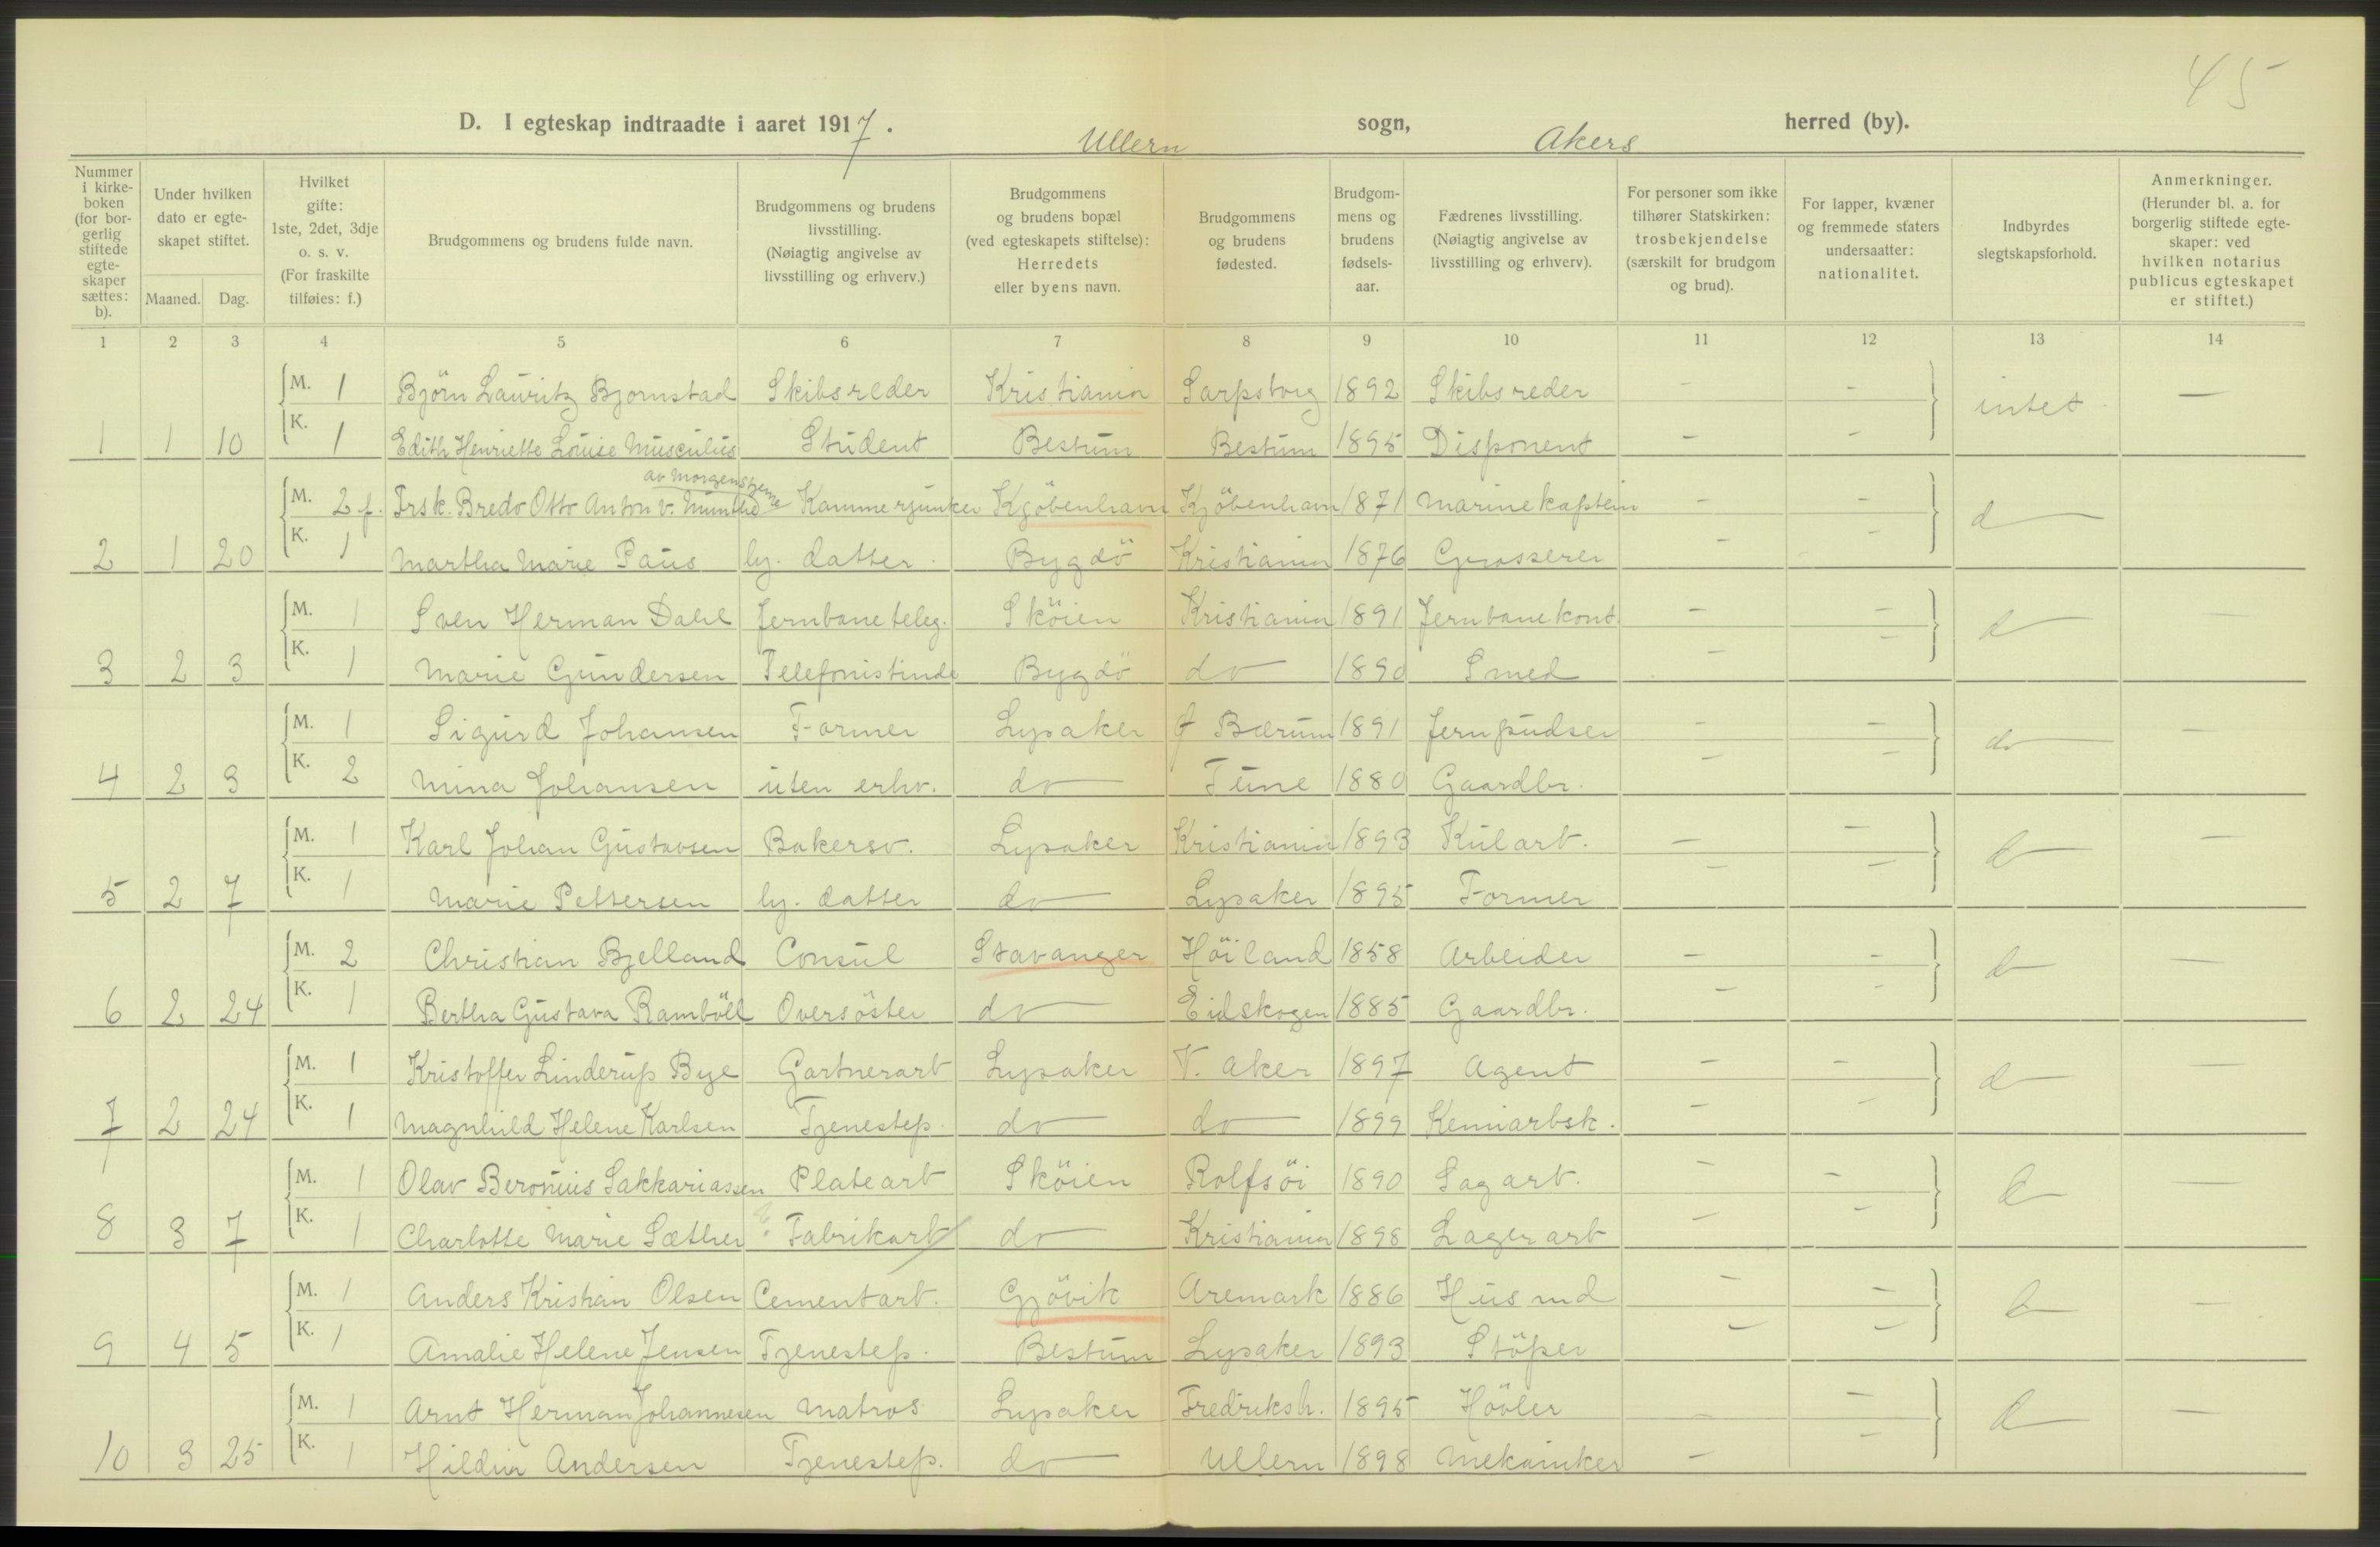 45
D. I egteskap indtraadte i aaret 1917. Ullern sogn, Akers herred (by).
Nummer i kirkeboken (for borgerlig stiftede egteskaper sættes: b).
Under hvilken dato er egteskapet stiftet.
Maaned. Dag.
Hvilket gifte: 1ste, 2det, 3dje o. s. v. (For fraskilte tilføies: f.)
Brudgommens og brudens fulde navn.
Brudgommens og brudens livsstilling. (Nøiagtig angivelse av livsstilling og erhverv.)
Brudgommens og brudens bopæl (ved egteskapets stiftelse): Herredets eller byens navn.
Brudgommens og brudens fødested.
Brudgommens og brudens fødselsaar.
Fædrenes livsstilling. (Nøiagtig angivelse av livsstilling og erhverv).
For personer som ikke tilhører Statskirken: trosbekjendelse (særskilt for brudgom og brud).
For lapper, kvæner og fremmede staters undersaatter: nationalitet.
Indbyrdes slegtskapsforhold.
Anmerkninger. (Herunder bl. a. for borgerlig stiftede egteskaper: ved hvilken notarius publicus egteskapet er stiftet.)
1 2 3 4 5 6 7 8 9 10 11 12 13 14
M. 1 Björn Lauritz Bjornstad Skibsreder Kristiania Sarpsborg 1892 Skibsreder - - intet -
1 1 10 K. 1 Edith Henriette Louise Musculus Student Bestum Bestum 1895 Disponent - -
av Morgenstjerne
M. 2 f. Frsk. Bredo Otto Anton v. Munthe Kammerjunker Kjöbenhavn Kjöbenhavn 1871 Marinekaptein - - d
2 1 20 K. 1 Martha Marie Paus hj. datter. Bygdö Kristiania 1876 Grosserer - -
M. 1 Sven Herman Dahl Jernbaneteleg. Sköien Kristiania 1891 Jernbanekont. - - d -
3 2 3 K. 1 Marie Gundersen Telefonistinde Bygdö do 1890 Smed - -
M. 1 Sigurd Johansen Former Lysaker Bærum 1891 Jernpudser - - do -
4 2 3 K. 2 Mina Johansen uten erhv. do Tune 1880 Gaardbr. - -
M. 1 Karl Johan Gustavsen Bakersv. Lysaker Kristiania 1893 Kularb. - - d -
5 2 7 K. 1 Marie Pettersen hj. datter do Lysaker 1895 Former - -
M. 2 Christian Bjelland Consul Stavanger Höiland 1858 Arbeider - - d -
6 2 24 K. 1 Bertha Gustava Ramböll Oversöster do Eidskogen 1885 Gaardbr. - -
M. 1 Kristoffer Linderup Bye Gartnerarb Lysaker V. Aker 1897 Agent - - d -
7 2 24 K. 1 Magnhild Helene Karlsen Tjenestep. do do 1899 -
M. 1 Olav Beronius Sakkariassen Platearb Sköien Rolfsöi 1890 Sagarb. - - d -
8 3 7 K. 1 Charlotte Marie Sæther Fabrikarb do Kristiania 1898 Lagerarb - -
M. 1 Anders Kristian Olsen Cementarb. Gjövik Aremark 1886 Husmd - - d -
9 4 5 K. 1 Amalie Helene Jensen Tjenestep. Bestum Lysaker 1893 Stöper - -
M. 1 Arnt Herman Johannesen Matros Lysaker Fredriksh. 1895 Hövler - - d -
10 3 25 K. 1 Andersen Tjenestep. do Ullern 1898 Mekaniker - -